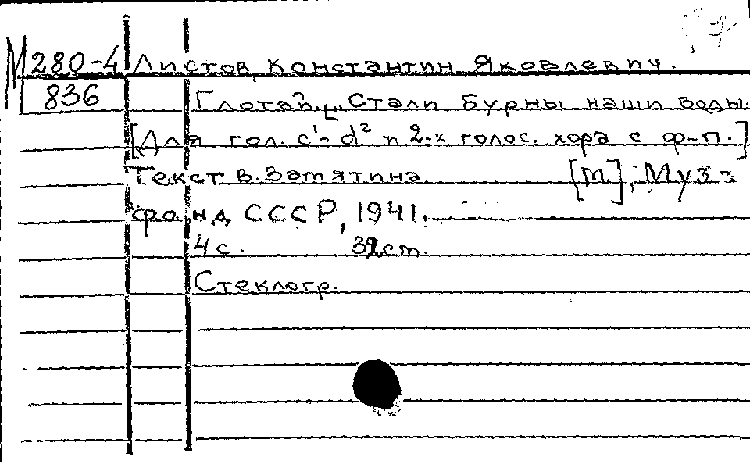 М280-4 Листов, Константин Яковлевич.
836 Глотай. [Стали бурны наши воды.
[Для гол. c¹-d² и 2-х голос. хора с ф-п.]
Текст В. Замятина [М], Муз-
фонд СССР, 1941.
4 с. 32 см.
Стеклогр.